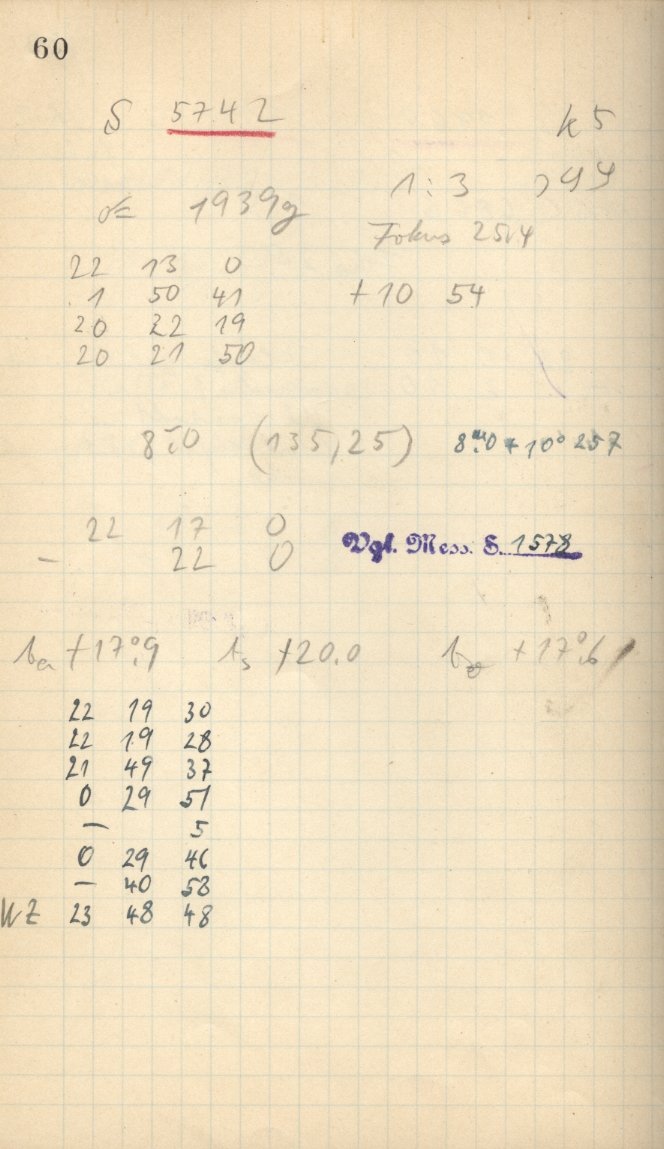 60
S 5742 k 5
1:3 >99
1939g
Fokus 25.4
22 13 0
1 50 41 +10 54
20 22 19
20 21 50
8ᵐ.0 (135,25) 8ᵐ.0 + 10° 257
22 17 0
— 22 0 Vgl. Mess. S. 1578
ta +17°.9 ts +20.0 +17°.6
22 19 30
22 19 28
21 49 37
0 29 51
— 5
0 29 46
— 40 58
WZ 23 48 48